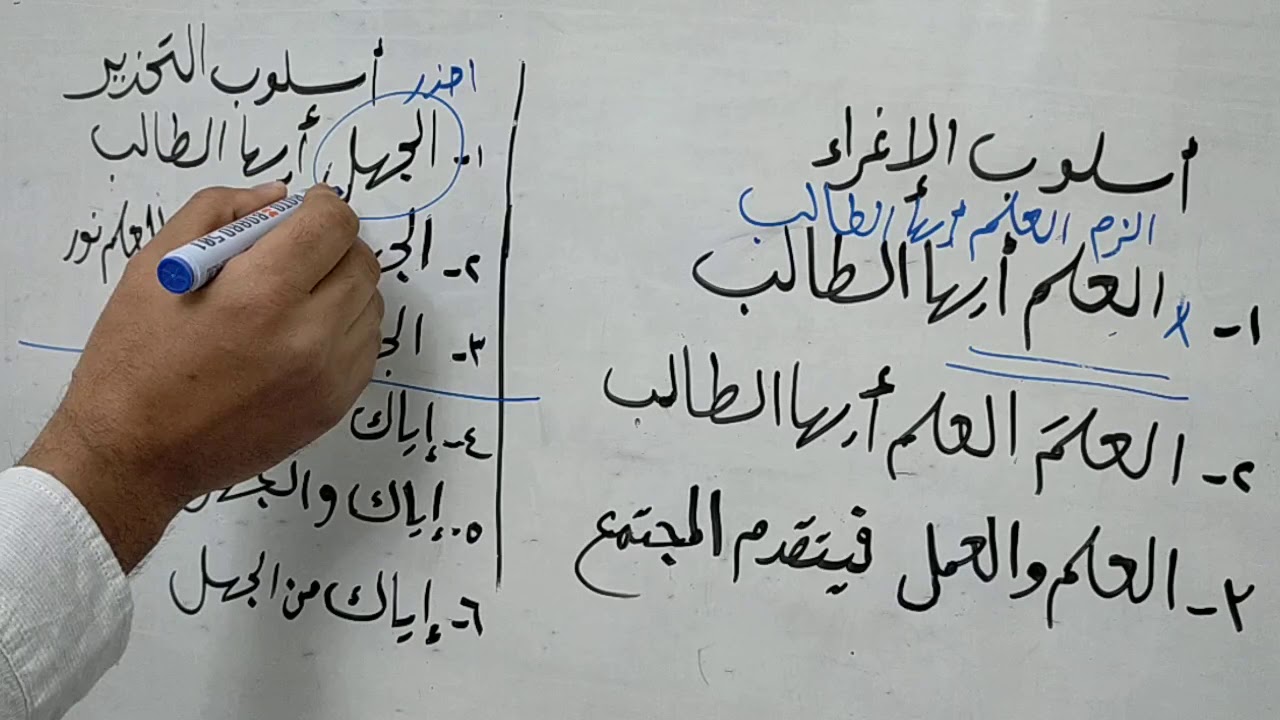 أسلوب الإغراء
الزم العلم أيها الطالب
١- العلم أيها الطالب
٢- العلمَ العلم أيها الطالب
٣- العلم والعمل فيتقدم المجتمع
أسلوب التحذير
احذر
١- الجهل أيها الطالب
٢- العلم نور
٣-
٤- إياك
٥- إياك والجهل
٦- إياك من الجهل